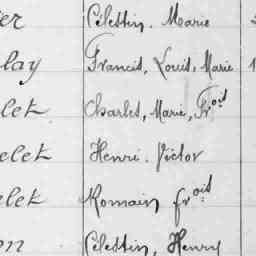 er Célestin. Marie
lay Francis, Louis, Marie
let Charles, Marie, Frois
elet Henri. Victor
elet Romain frois
on Célestin, Henry